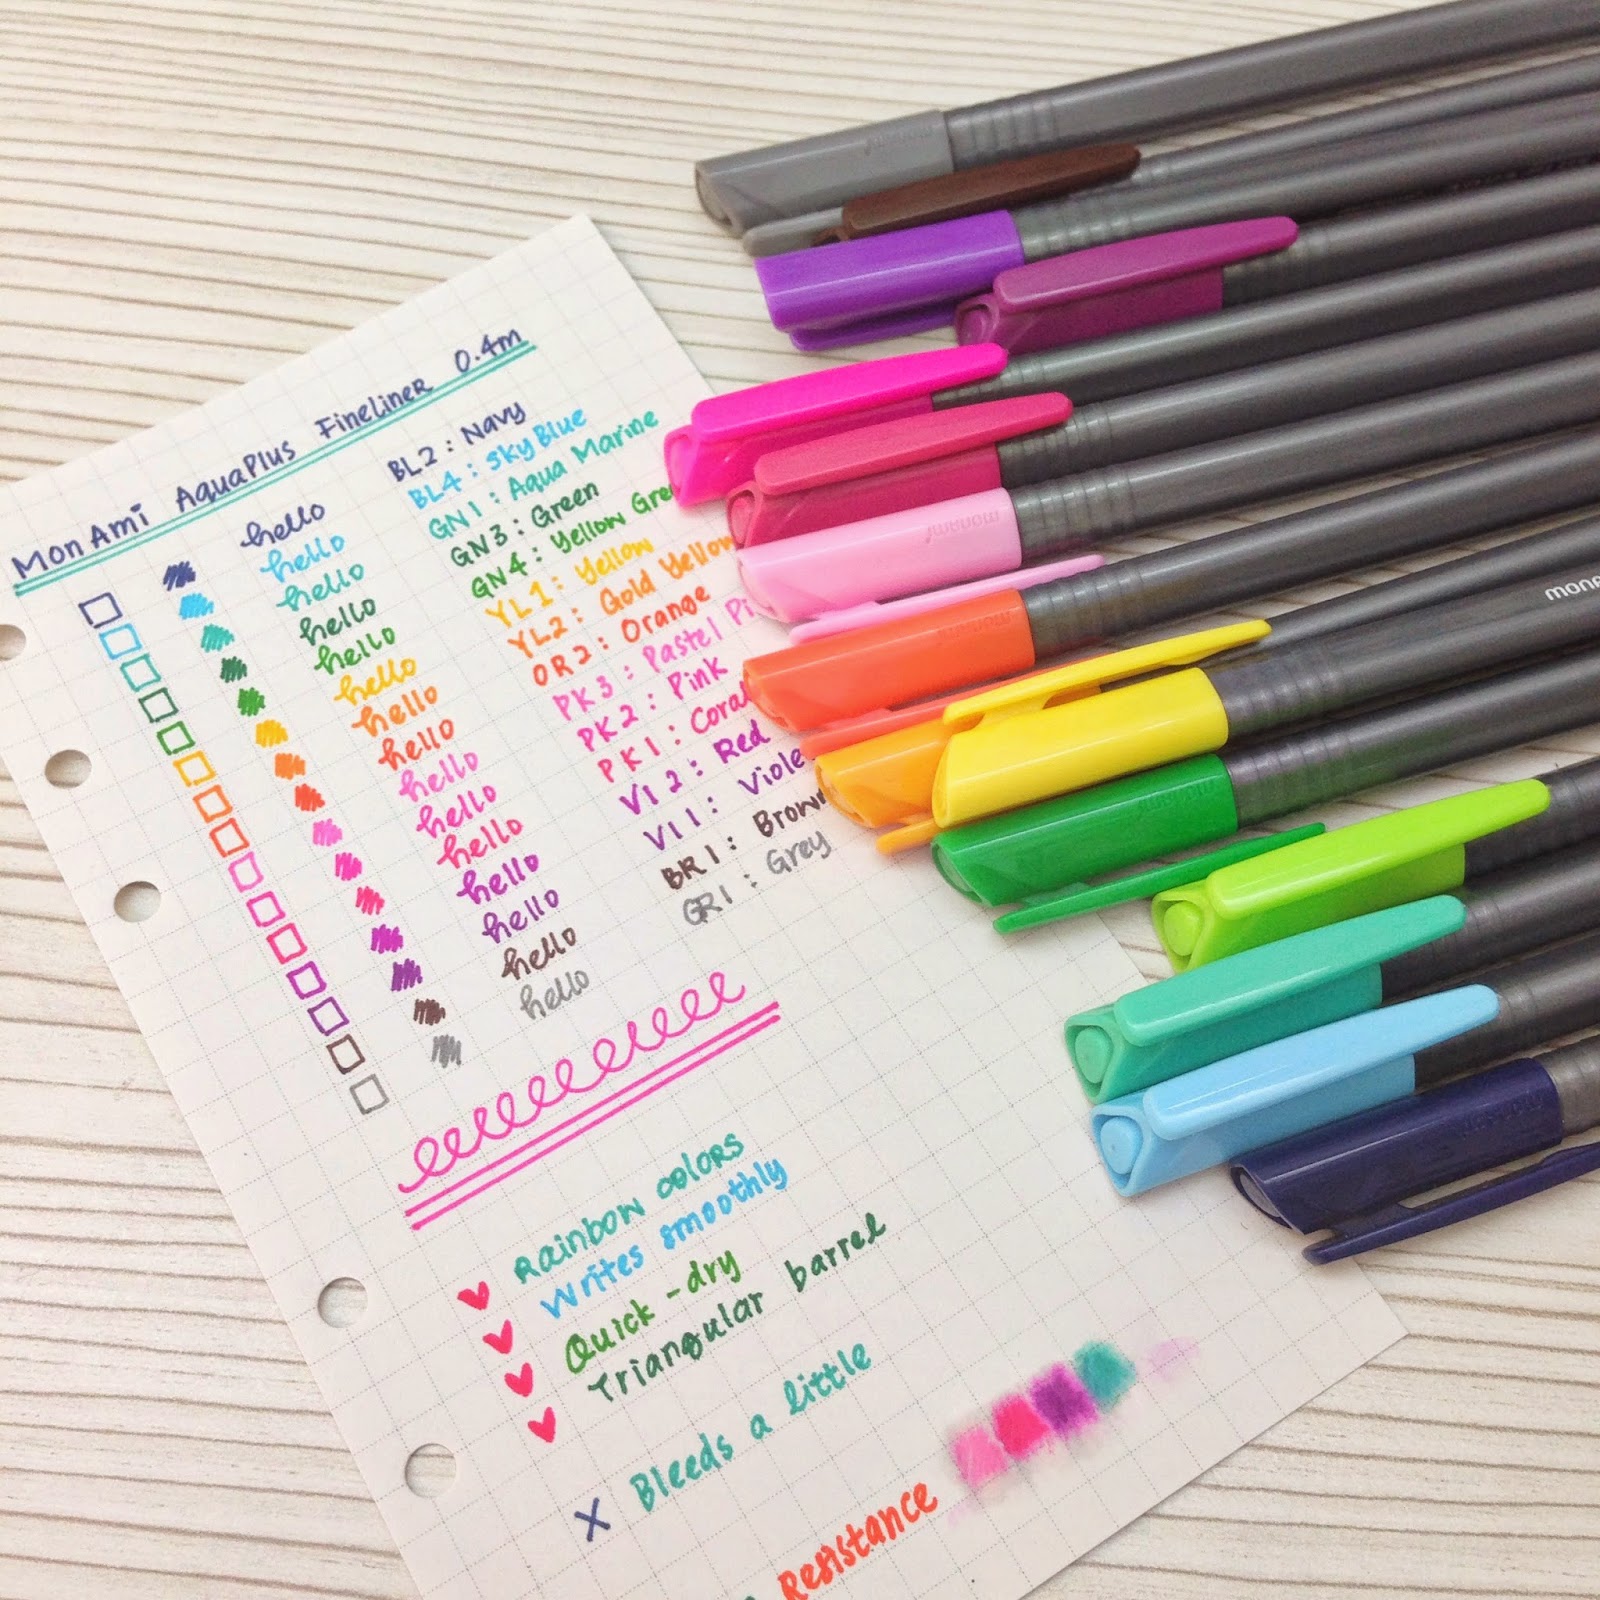 MonAmi AquaPlus Fineliner 0.4m
hello BL2 : Navy
hello BL4 : Sky Blue
hello GN1 : Aqua Marine
hello GN3 : Green
hello GN4 : Yellow Gre
hello YL1 : Yellow
hello YL2 : Gold Yellow
hello OR2 : Orange
hello PK3 : Pastel Pi
hello PK2 : Pink
hello PK1 : Cora
hello VI2 : Red
hello VI1 : Viole
hello BR1 : Brown
hello GR1 : Grey
Rainbow colors
Writes smoothly
Quick-dry
Triangular barrel
X Bleeds a little
Resistance
monami
monami
monami
monami
mona